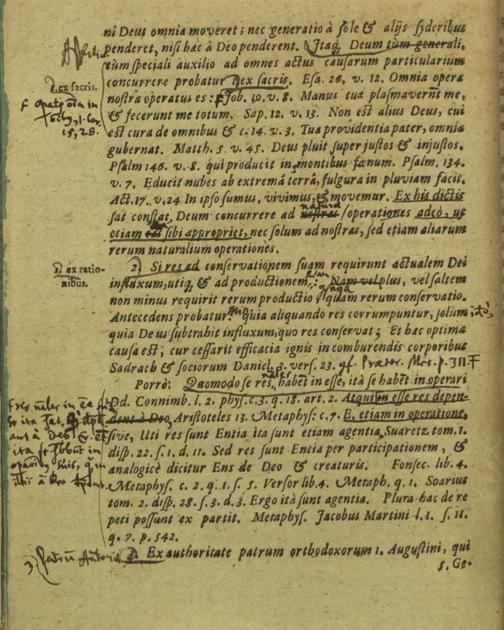 ni Deus omnia moveret; nec generatio à sole & alijs syderibus
penderet, nisi hæc à Deo penderent. Itaq; Deum tùm generali,
tùm speciali auxilio ad omnes actus causarum particularium
concurrere probatur ex sacris. Esa. 26, v. 12. Omnia opera
1. ex sacris.
nostra operatus es: Job. 10. v. 8. Manus tuæ plasmaverũt me,
& fecerunt me totum. Sap. 12. v. 13. Non est alius Deus, cui
15, 28.
est cura de omnibus & c. 14. v. 3. Tua providentia pater, omnia
gubernat. Matth. 5. v. 45. Deus pluit super justos & injustos.
Psalm 146. v. 8. qui producit in montibus fœnum. Psalm. 134.
v. 7. Educit nubes ab extremâ terrâ, fulgura in pluviam facit.
Act. 17. v. 24 In ipso sumus, vivimus, & movemur. Ex his dictis
natura
sat constat, Deum concurrere ad nostras operationes adeò, ut
etiam sibi appropriet, nec solum ad nostras, sed etiam aliarum
rerum naturalium operationes.
2. ex ratio-
nibus.
2) Si res ad conservationem suam requirunt actualem Dei
influxum, utiq; & ad productionem: Nam vel plus, vel saltem
non minus requirit rerum productio quàm rerum conservatio.
Antecedens probatur: quia aliquando res corrumpuntur, solum
quia Deus subtrahit influxum, quo res conservat; Et hæc optima
causa est; cur cessarit efficacia ignis in comburendis corporibus
Sadrach & sociorum Daniel 3. vers. 23.
Porrò: Quomodo se res habẽt in esse, ità se habẽt in operari
Dd. Connimb. l. 2. phys. c. 3. q. 18. art. 2. Atquin esse res depen-
dent à Deo Aristoteles 13. Metaphys: c. 7. E. etiam in operatione,
sive, Uti res sunt Entia ità sunt etiam agentia Suaretz tom. 1.
disp. 22. s. 1. d. 11. Sed res sunt Entia per participationem, &
analogicè dicitur Ens de Deo & creaturis. Fonsec. lib. 4.
Metaphys. c. 2. q. 1. s. 5. Versor lib. 4. Metaph. q. 1. Soarius
tom. 2. disp. 28. s. 3. d. 3. Ergo ità sunt agentia. Plura hac de re
peti possunt ex partit. Metaphys. Jacobus Martini l. 1. s. 11.
q. 7. p. 542.
Ex authoritate patrum orthodoxorum 1. Augustini, qui
5. Ge-